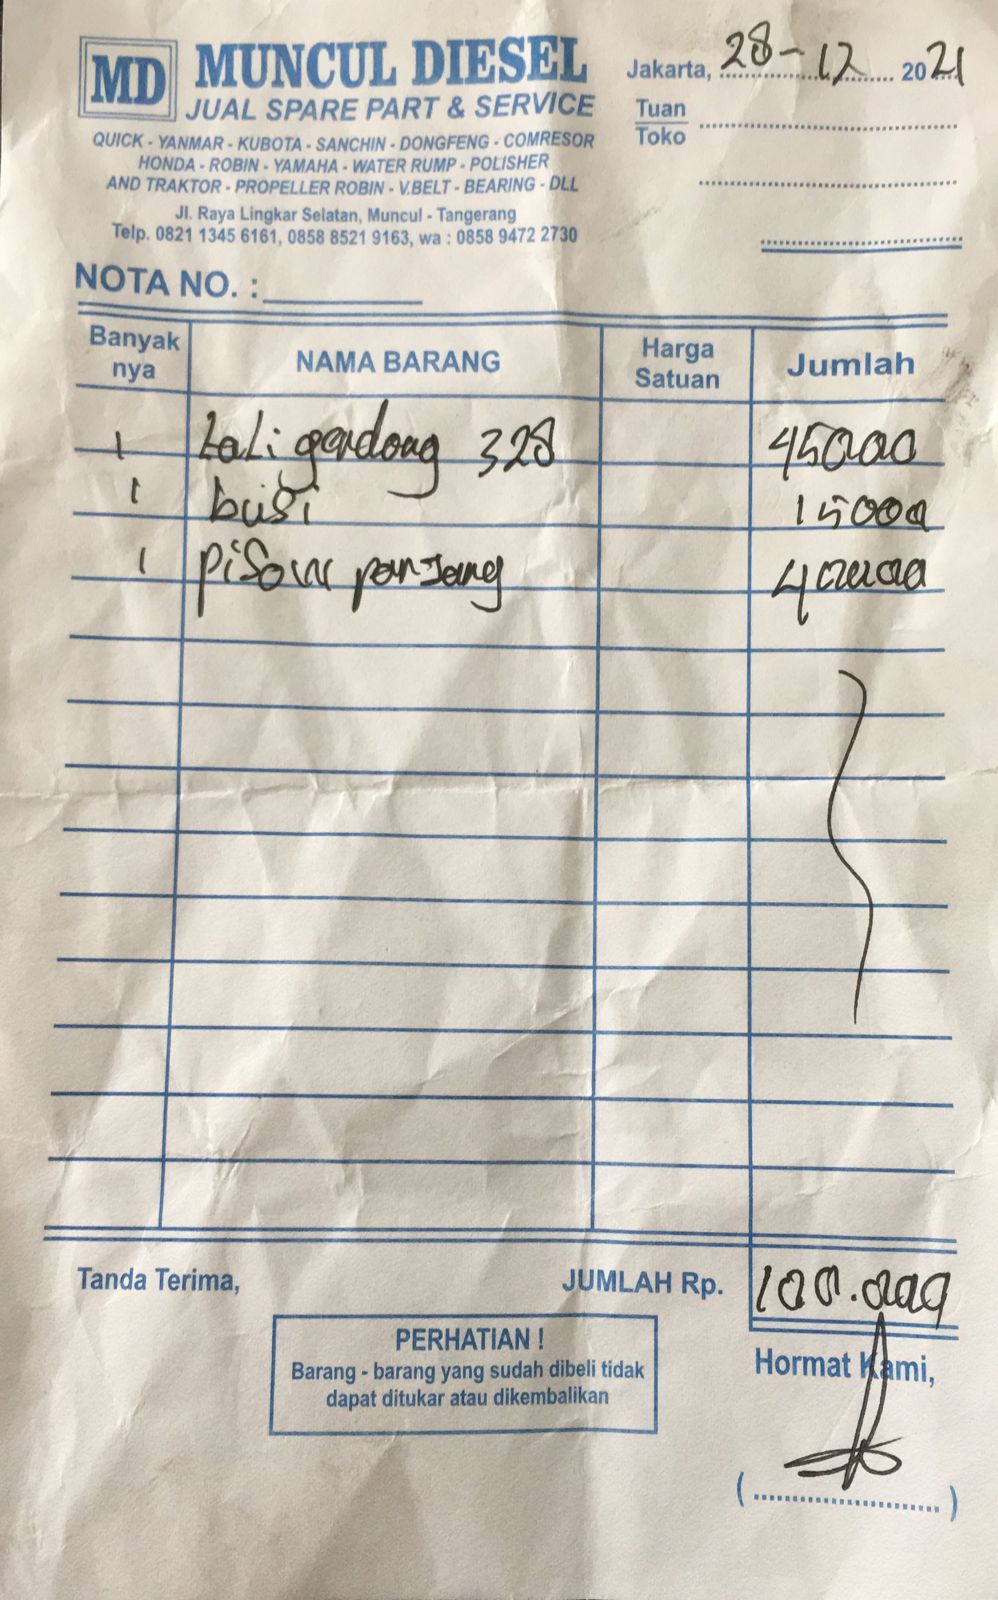 MD MUNCUL DIESEL
JUAL SPARE PART & SERVICE
QUICK - YANMAR - KUBOTA - SANCHIN - DONGFENG - COMRESOR
HONDA - ROBIN - YAMAHA - WATER RUMP - POLISHER
AND TRAKTOR - PROPELLER ROBIN - V.BELT - BEARING - DLL
Jl. Raya Lingkar Selatan, Muncul - Tangerang
Telp. 0821 1345 6161, 0858 8521 9163, wa : 0858 9472 2730
Jakarta, 28-12 2021
Tuan
Toko
NOTA NO. :
Banyak nya NAMA BARANG Harga Satuan Jumlah
1 tali gendong 328 45000
1 busi 15000
1 pisau panjang 40000
Tanda Terima, JUMLAH Rp. 100.000
PERHATIAN !
Barang - barang yang sudah dibeli tidak
dapat ditukar atau dikembalikan
Hormat Kami,